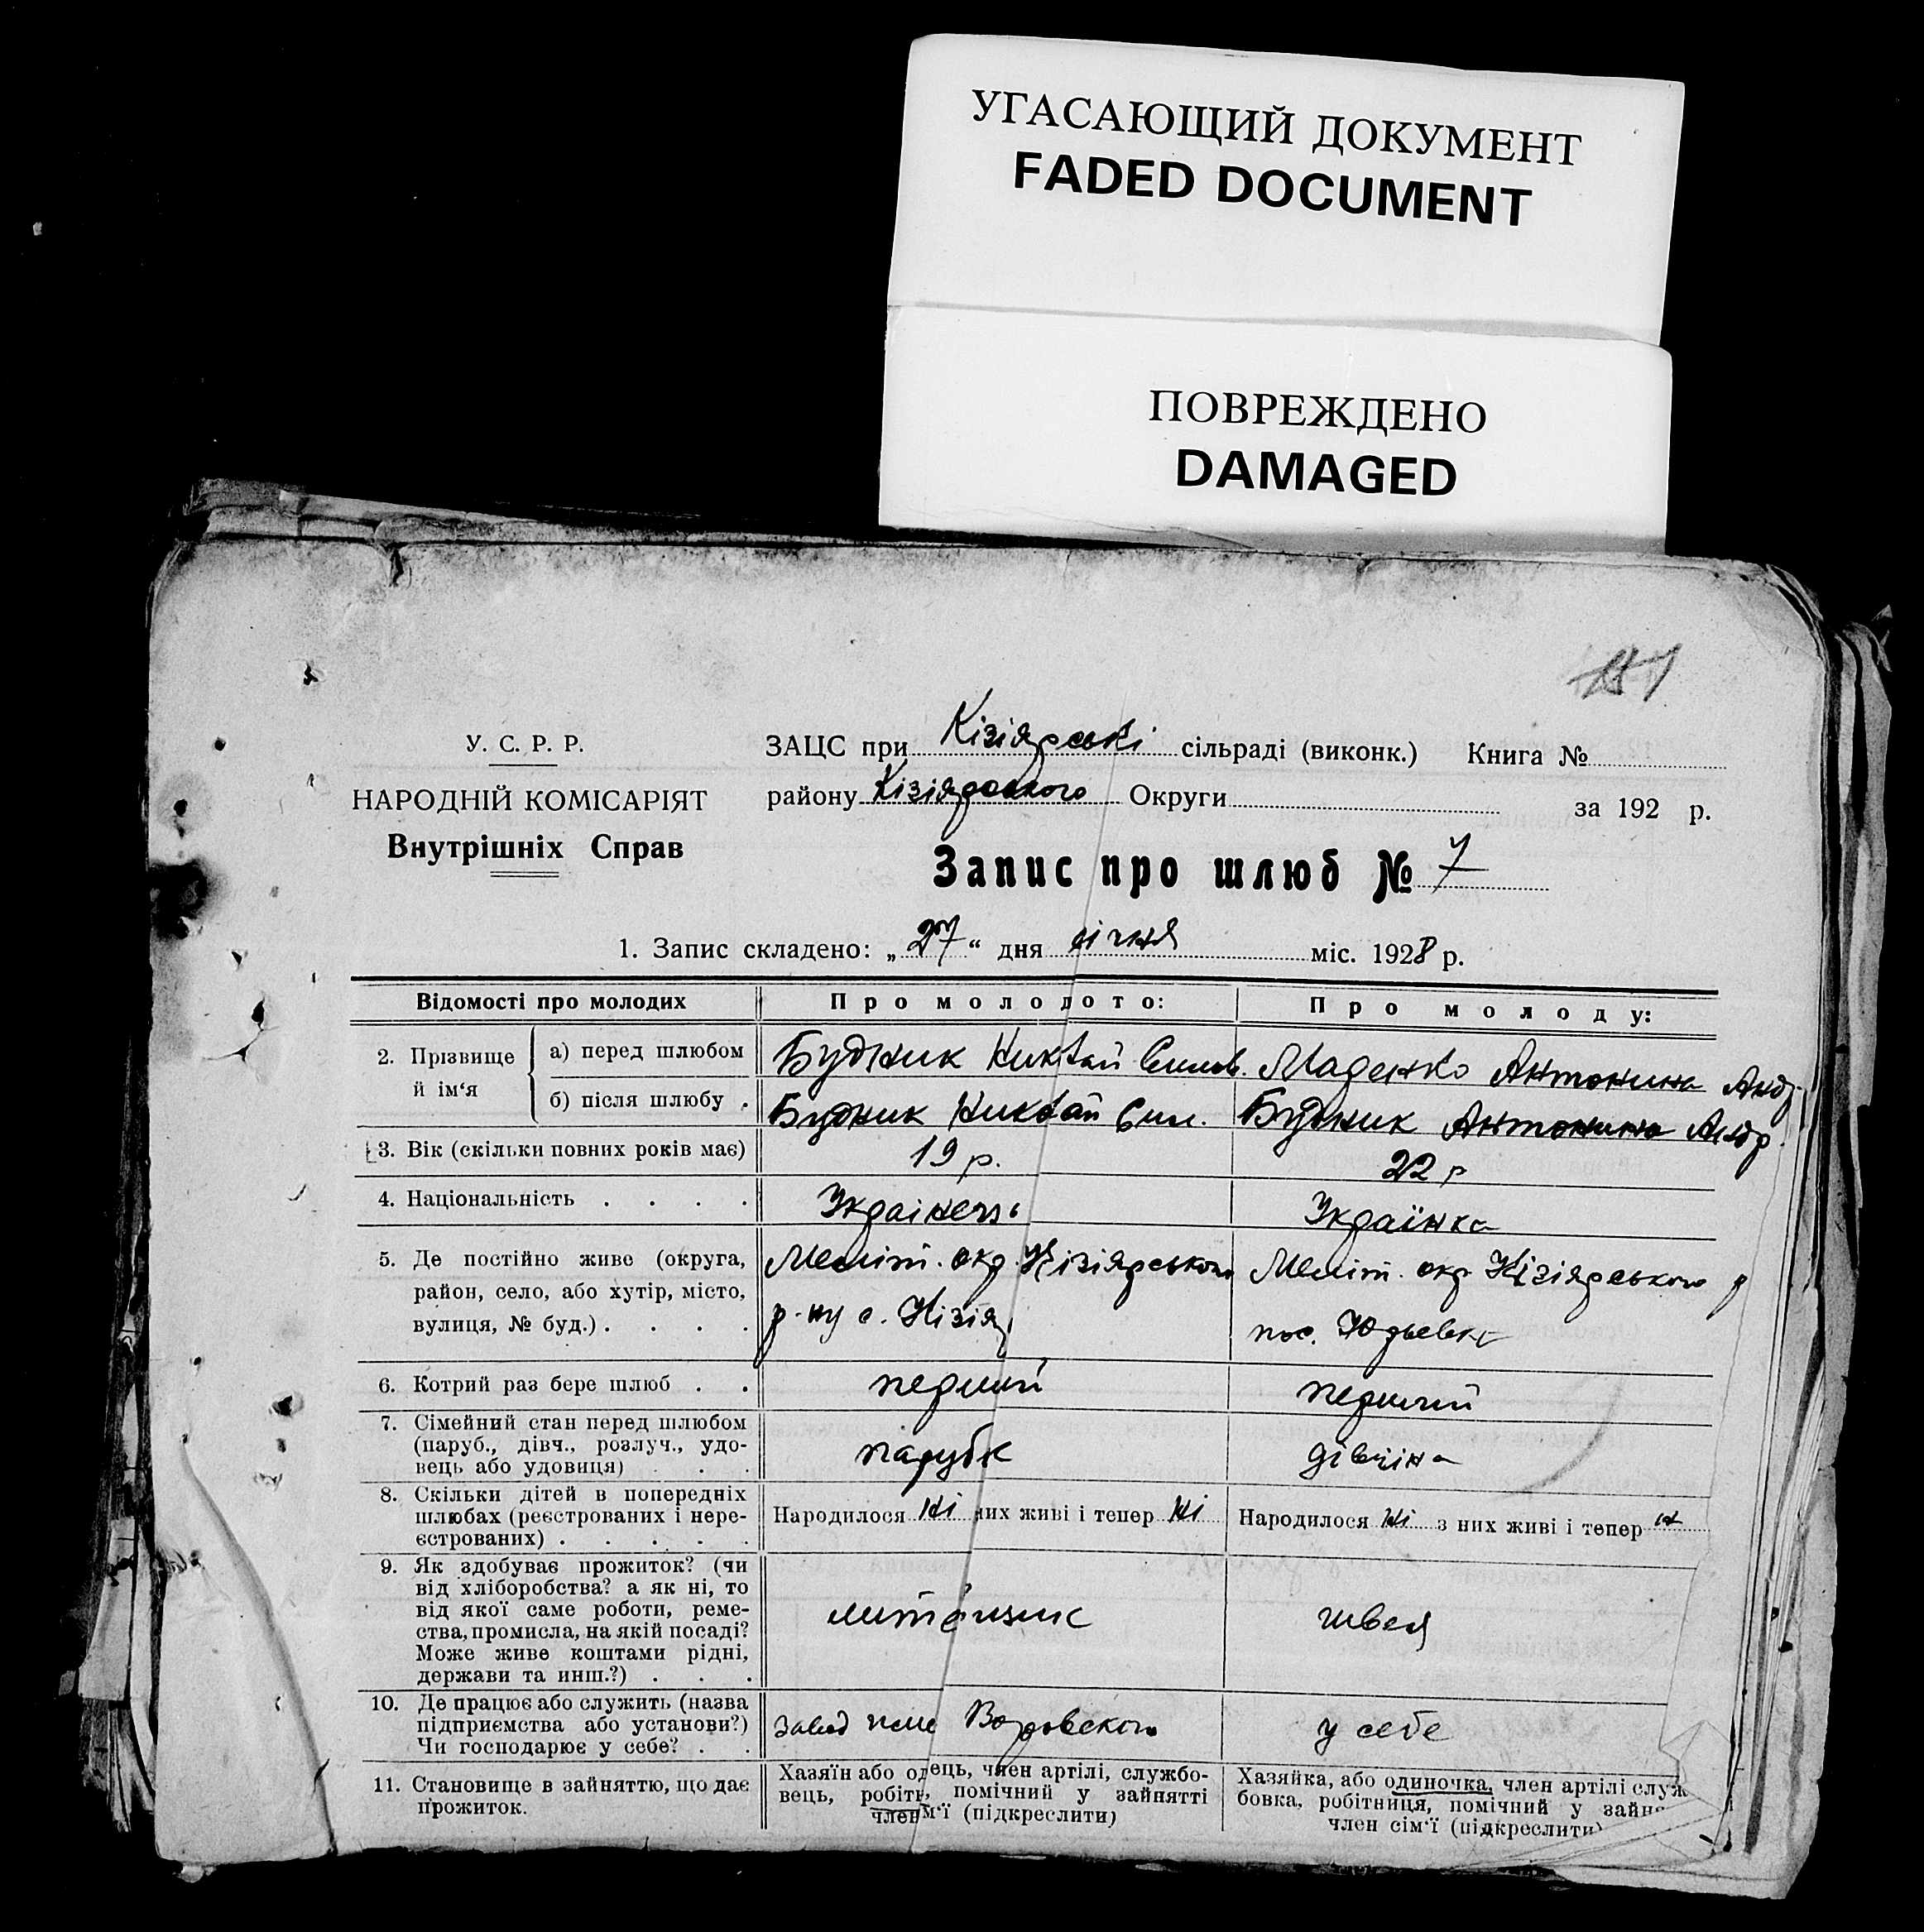 УГАСАЮЩИЙ ДОКУМЕНТ
FADED DOCUMENT
ПОВРЕЖДЕНО
DAMAGED
У. С. Р. Р.
НАРОДНІЙ КОМІСАРІЯТ
Внутрішніх Справ
ЗАЦС при Кізіярські сільраді (виконк.) Книга №
району Кізіярського Округи за 192 р.
Запис про шлюб № 7
1. Запис складено: „27“ дня січня міс. 1928 р.
Відомості про молодих
Про молодого:
Про молоду:
2. Прізвище й ім‘я
а) перед шлюбом
Будник Никтай Симов. Маденко Антонина Андр.
б) після шлюбу
Будник Никтай Сим. Будник Антонина Андр.
3. Вік (скільки повних років має)
19 р.
22 р
4. Національність . . . .
Українець
Українка
5. Де постійно живе (округа,
район, село, або хутір, місто,
вулиця, № буд.) . . . .
Меліт. окр. Кізіярського
р-ну с. Кізіяр
Меліт. окр Кізіярського р
пос. Юрьевк
6. Котрий раз бере шлюб . .
перший
перший
7. Сімейний стан перед шлюбом
(паруб., дівч., розлуч., удо-
вець або удовиця) . . .
парубк
дівчина
8. Скільки дітей в попередніх
шлюбах (реєстрованих і нере-
єстрованих) . . . . .
Народилося ні них живі і тепер ні
Народилося ні з них живі і тепер н
9. Як здобуває прожиток? (чи
від хліборобства? а як ні, то
від якої саме роботи, реме-
ства, промисла, на якій посаді?
Може живе коштами рідні,
держави та инш.?) . . .
швея
10. Де працює або служить (назва
підприємства або установи?)
Чи господарює у себе? . .
завод име Воровского
у себе
11. Становище в зайняттю, що дає
прожиток.
Хазяїн або одець, член артілі, службо-
вець, робітн, помічний у зайнятті
член м‘ї (підкреслити)
Хазяйка, або одиночка, член артілі служ
бовка, робітниця, помічний у зайн
член сім‘ї (підкреслити)